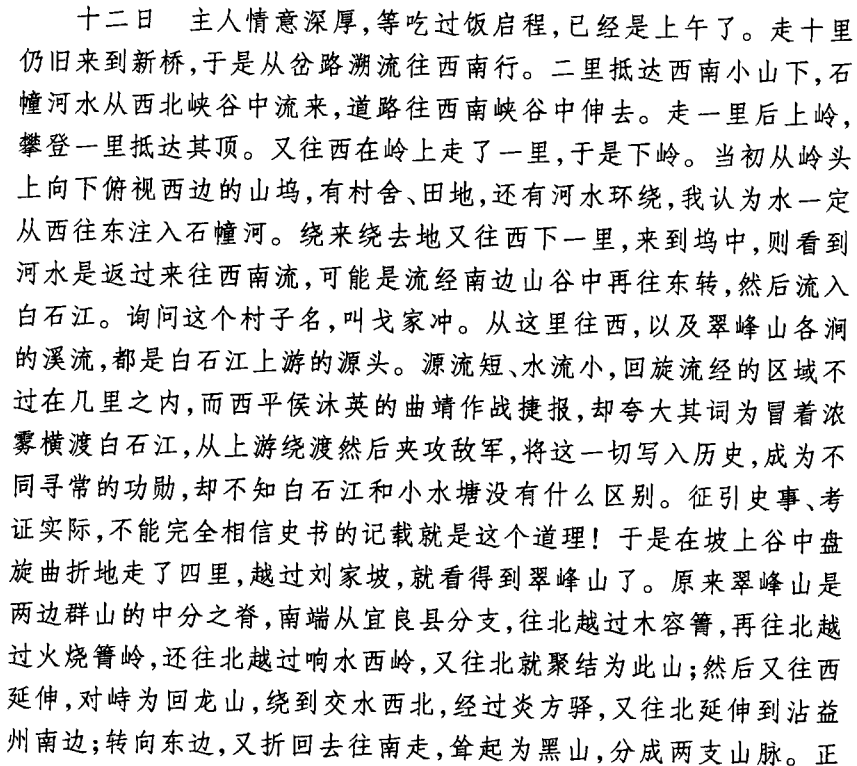 十二日　主人情意深厚，等吃过饭启程，已经是上午了。走十里
仍旧来到新桥，于是从岔路溯流往西南行。二里抵达西南小山下，石
幢河水从西北峡谷中流来，道路往西南峡谷中伸去。走一里后上岭，
攀登一里抵达其顶。又往西在岭上走了一里，于是下岭。当初从岭头
上向下俯视西边的山坞，有村舍、田地，还有河水环绕，我认为水一定
从西往东注入石幢河。绕来绕去地又往西下一里，来到坞中，则看到
河水是返过来往西南流，可能是流经南边山谷中再往东转，然后流入
白石江。询问这个村子名，叫戈家冲。从这里往西，以及翠峰山各涧
的溪流，都是白石江上游的源头。源流短、水流小，回旋流经的区域不
过在几里之内，而西平侯沐英的曲靖作战捷报，却夸大其词为冒着浓
雾横渡白石江，从上游绕渡然后夹攻敌军，将这一切写入历史，成为不
同寻常的功勋，却不知白石江和小水塘没有什么区别。征引史事、考
证实际，不能完全相信史书的记载就是这个道理！于是在坡上谷中盘
旋曲折地走了四里，越过刘家坡，就看得到翠峰山了。原来翠峰山是
两边群山的中分之脊，南端从宜良县分支，往北越过木容箐，再往北越
过火烧箐岭，还往北越过响水西岭，又往北就聚结为此山；然后又往西
延伸，对峙为回龙山，绕到交水西北，经过炎方驿，又往北延伸到沾益
州南边；转向东边，又折回去往南走，耸起为黑山，分成两支山脉。正